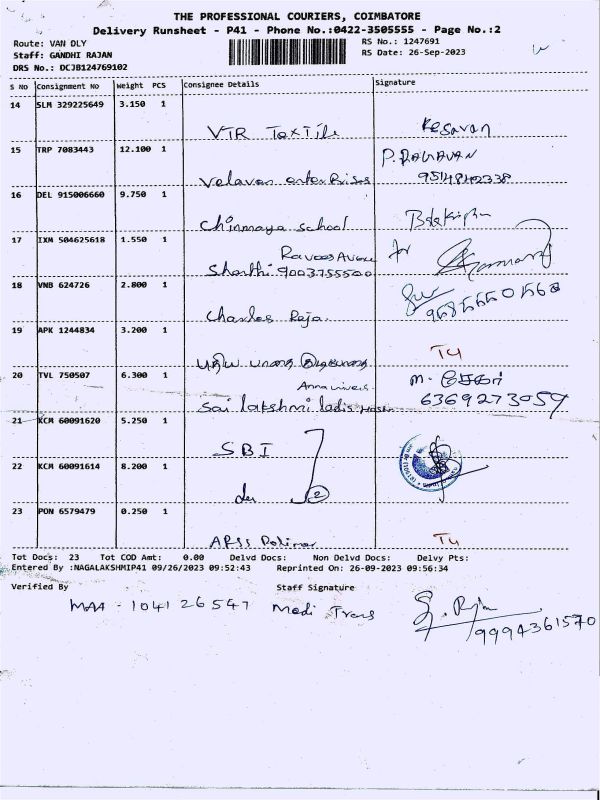 THE PROFESSIONAL COURIERS, COIMBATORE
Delivery Runsheet - P41 - Phone No.:0422-3505555 - Page No.:2
Route: VAN DLY RS No.: 1247691
Staff: GANDHI RAJAN RS Date: 26-Sep-2023
DRS No.: DCJB124769102
S No Consignment No Weight PCS Consignee Details Signature
14 SLM 329225649 3.150 1
VTR Textile Kesavan
15 TRP 7083443 12.100 1 P. RAGAVAN
Velavan enterPrises 9514840338
16 DEL 915006660 9.750 1
Chinmaya school
17 IXM 504625618 1.550 1 for
Sharthi 9003755500
18 VNB 624726 2.800 1
Charles Raja.
19 APK 1244834 3.200 1
20 TVL 750507 6.300 1 m.
Anna univers.
Sai lakshmi ladis Hostel 6369273059
21 KCM 60091620 5.250 1
SBI
22 KCM 60091614 8.200 1
do 2
23 PON 6579479 0.250 1
ARSS
Tot Docs: 23 Tot COD Amt: 0.00 Delvd Docs: Non Delvd Docs: Delvy Pts:
Entered By :NAGALAKSHMIP41 09/26/2023 09:52:43 Reprinted On: 26-09-2023 09:56:34
Verified By Staff Signature
MAA - 104126547 Medi Trans
9994361570